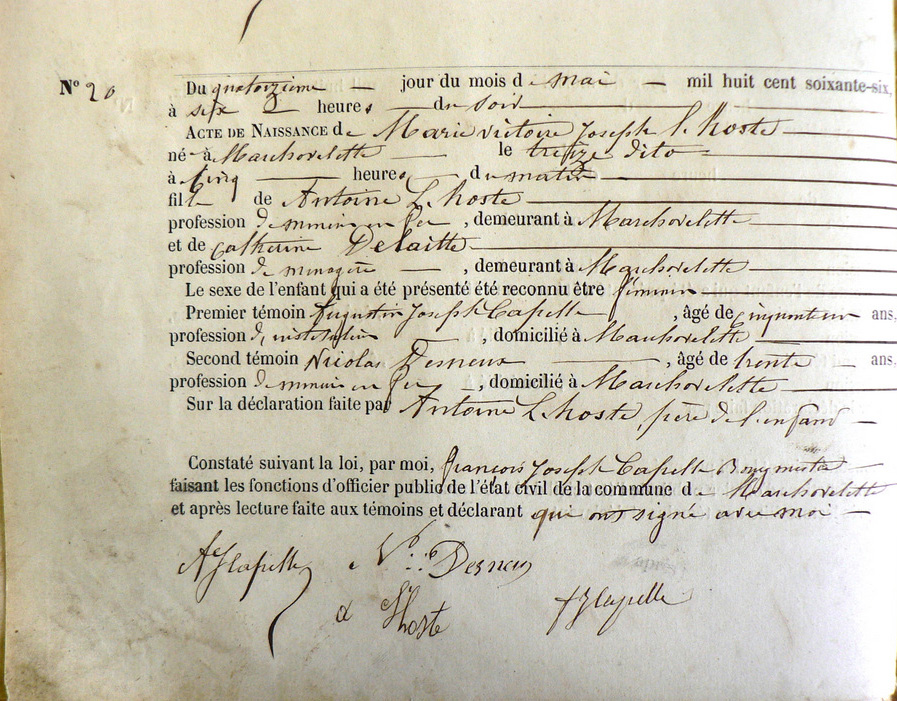 N° 20
Du quatorzième jour du mois de mai mil huit cent soixante-six,
à six heures du soir
ACTE DE NAISSANCE de Marie victoire Joseph L'hoste
né à Marchovelette le treize dito
à Cinq heures du matin
fille de Antoine L'hoste
profession de mineur en fer, demeurant à Marchovelette
et de Catherine Delaitte
profession de menagère, demeurant à Marchovelette
Le sexe de l'enfant qui a été présenté été reconnu être féminin
Premier témoin Augustin Joseph Capelle, âgé de ans,
profession d, domicilié à Marchovelette
Second témoin Nicolas Desneux, âgé de trente ans,
profession de mineur en fer, domicilié à Marchovelette
Sur la déclaration faite par Antoine L'hoste, père de l'enfant
Constaté suivant la loi, par moi, françois Joseph Capelle Bourgmestre
faisant les fonctions d'officier public de l'état civil de la commune de Marchovelette
et après lecture faite aux témoins et déclarant qui ont signé avec moi
AJ Capelle N. Desneux
a L'hoste FJ Capelle